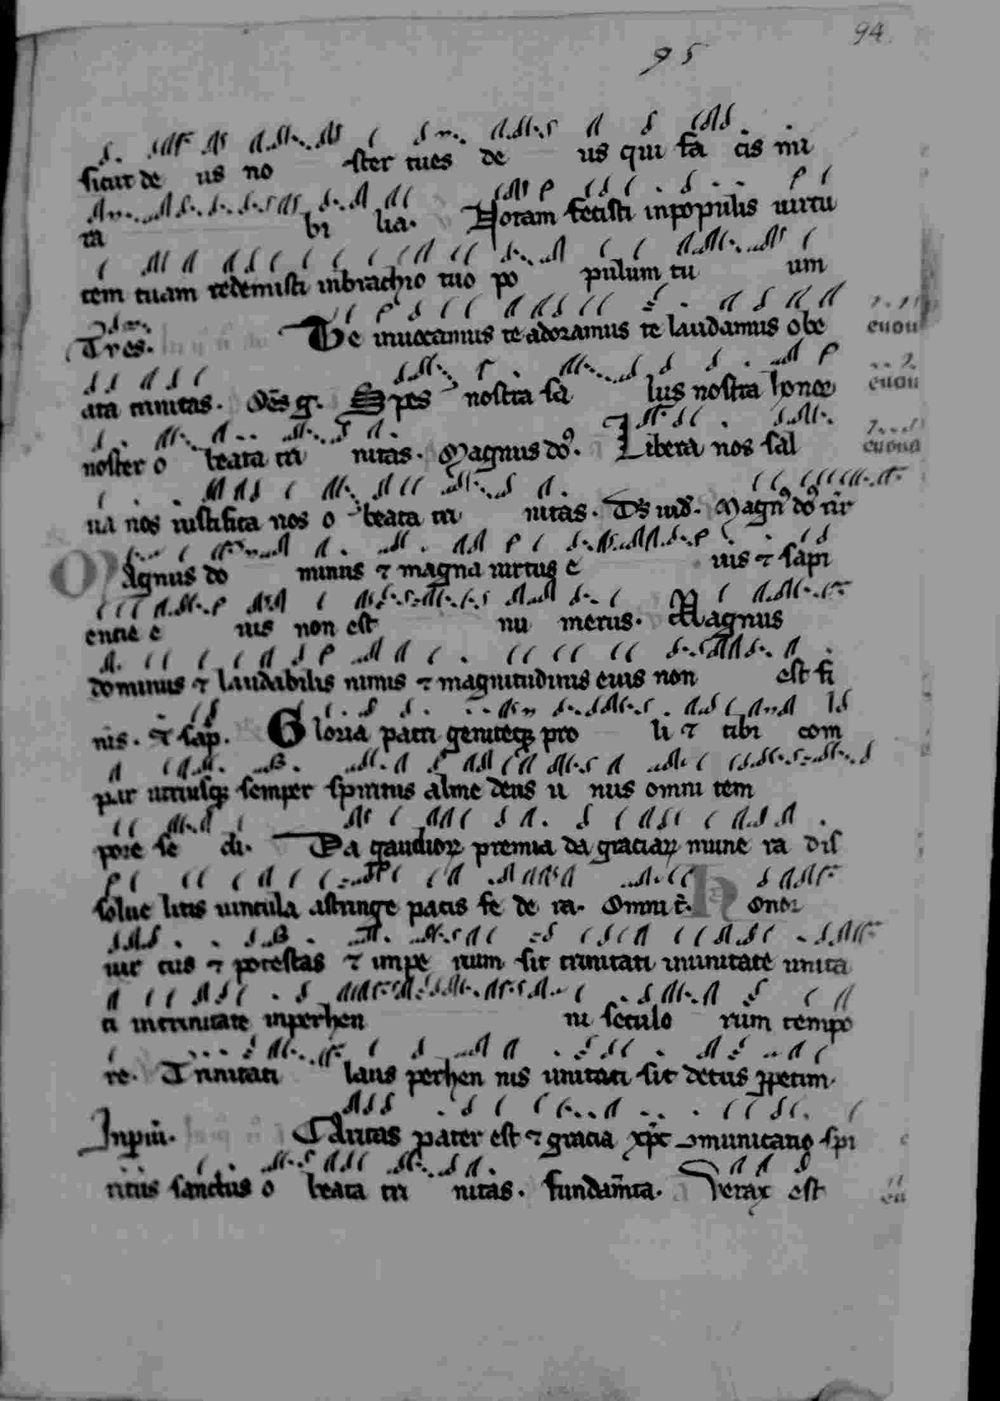 94
95
sicut de us no ster tu es de us qui fa cis mi
ra bi lia. Notam fecisti inpopulis uirtu
tem tuam redemisti inbrachio tuo po pulum tu um
Tres. Te inuocamus te adoramus te laudamus o be euou
ata trinitas. Spes nostra sa lus nostra honor euou
noster o beata tri nitas. Magnus do. Libera nos sal euoua
ua nos iustifica nos o beata tri nitas.
Magnus do minus ⁊ magna uirtus e ius ⁊ sapi
entie e ius non est nu merus. Magnus
dominus ⁊ laudabilis nimis ⁊ magnitudinis eius non est fi
nis. ⁊ sap. Gloria patri geniteq; pro li ⁊ tibi com
par utriusq; semper spiritus alme deus u nus omni tem
pore se cli. Da gaudioꝝ premia da graciaꝝ mune ra dis
solue litis uincula astringe pacis fe de ra. Omni t. Honor
uir tus ⁊ potestas ⁊ impe rium sit trinitati inunitate unita
ti intrinitate inperhen ni seculo rum tempo
re. Trinitati laus perhen nis unitati sit decus ꝑpetim.
Caritas pater est ⁊ gracia xpc ꝯmunicatio spi
ritus sanctus o beata tri nitas. fundamta. Verax est